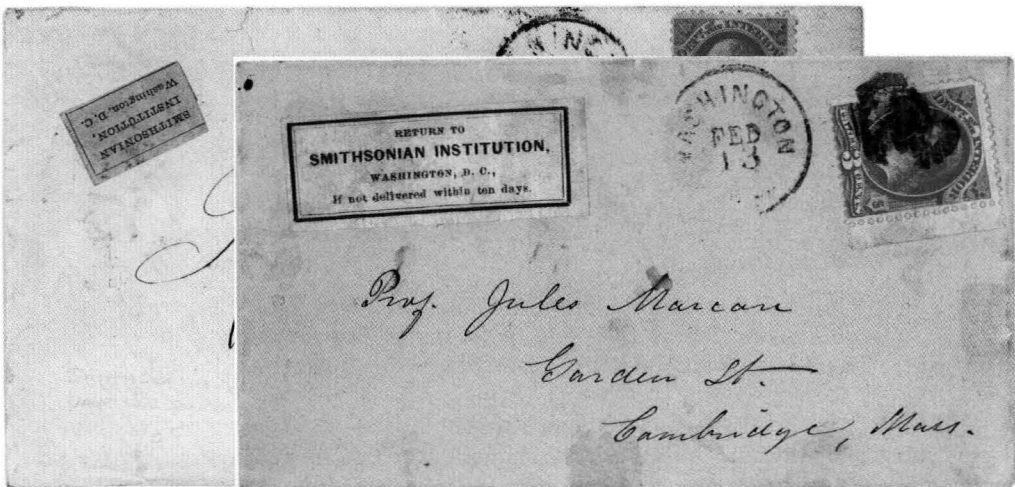 SMITHSONIAN
INSTITUTION,
Washington, D. C.
WASHING
RETURN TO
SMITHSONIAN INSTITUTION,
WASHINGTON, D. C.,
If not delivered within ten days.
WASHINGTON
FEB
13
DEPT. INTERIOR
3
CENTS
3
Prof. Jules Marcou
Garden St.
Cambridge, Mass.